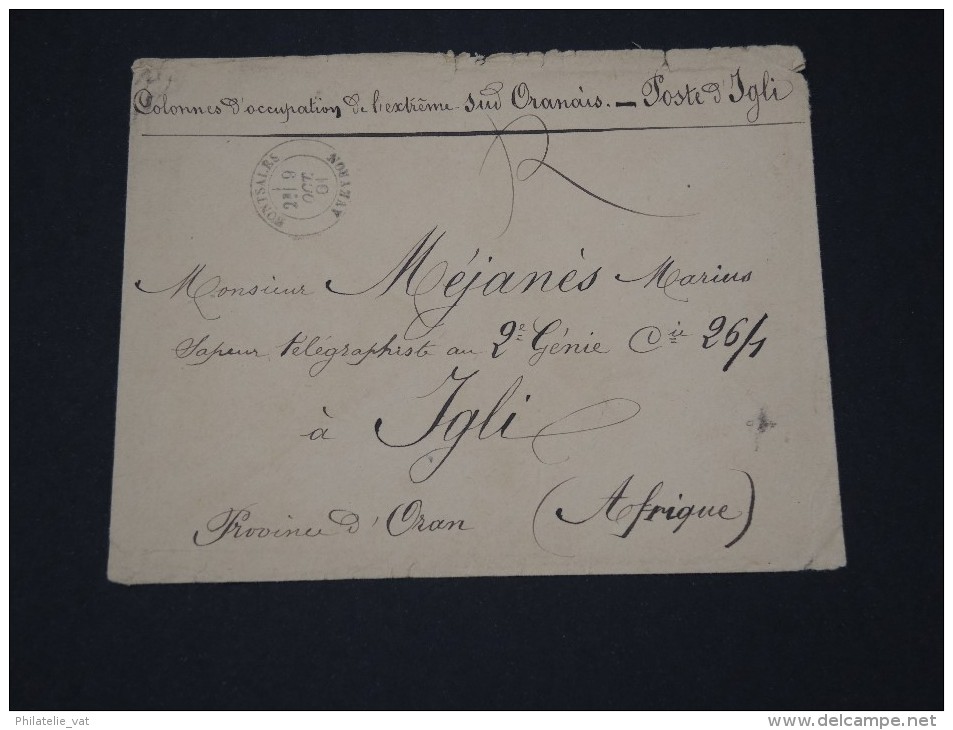 Colonnes d'occupation de l'extrême-Sud Oranais. — Poste d'Igli
R
MONTSALES
2E 9
OCT
01
AVEYRON
Monsieur Méjanès Marius
Sapeur télégraphiste au 2e Génie Cie 26/4
à Igli
Province d'Oran (Afrique)
Philatelie_vat
http://www.delcampe.net